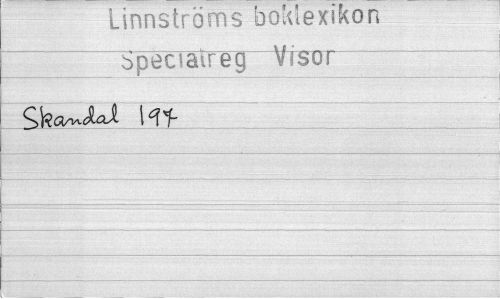 Linnströms boklexikon
Specialreg Visor
Skandal 197